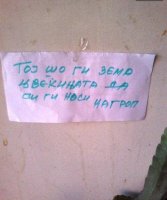 ТОЈ ШО ГИ ЗЕМА
ЦВЕЌИНАТА ДА
СИ ГИ НОСИ
НАГРОП